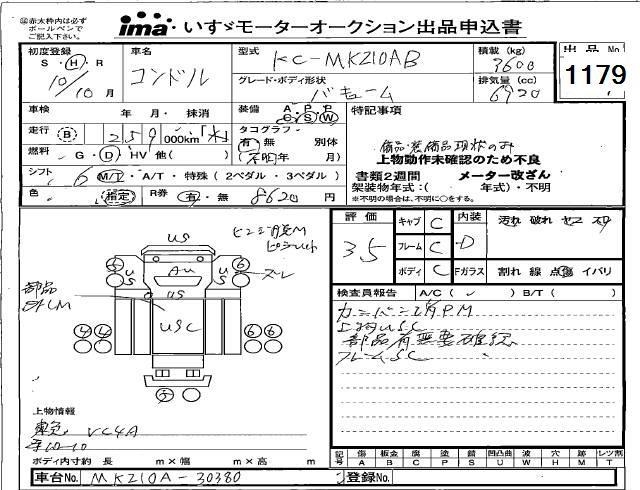 ㊟赤太枠内は必ず
ボールペンで
ご記入下さい。
ima いすゞモーターオークション出品申込書
初度登録 S・H・R
10/10月
車名 コンドル
型式 KC-MK210AB
積載(kg) 3600
出品No. 1179
グレード・ボディ形状 バキューム
排気量(cc) 6920
車検 年 月・ 抹消
装備 A/C P/S P/W
特記事項
走行 B 259 000km
タコグラフ 有・無 別体
(不明 年 月)
備品・装備品現状のみ
上物動作未確認のため不良
燃料 G・D・HV 他( )
書類2週間 メーター改ざん
シフト 6 M/T・A/T・特殊(2ペダル・3ペダル)
架装物年式:( 年式)・不明
※不明の場合は、不明に○をする。
色 指定 R券 有・無 8620 円
評価 35
キャブ C
フレーム C
ボディ C
内装 D
汚れ 破れ ヤニ
Fガラス 割れ 線 点傷 イバリ
検査員報告 A/C( ) B/T( )
上物USC
部品有無要確認
フレームSC
US
AU
US
USC
部品
上物情報
VC4A
ボディ内寸約 長 m×幅 m×高 m
記号 傷A 板金B 腐C 塗P 錆S 凹凸曲U 波W 穴H 跡M レツ割T
車台No. MK210A-30380
登録No.